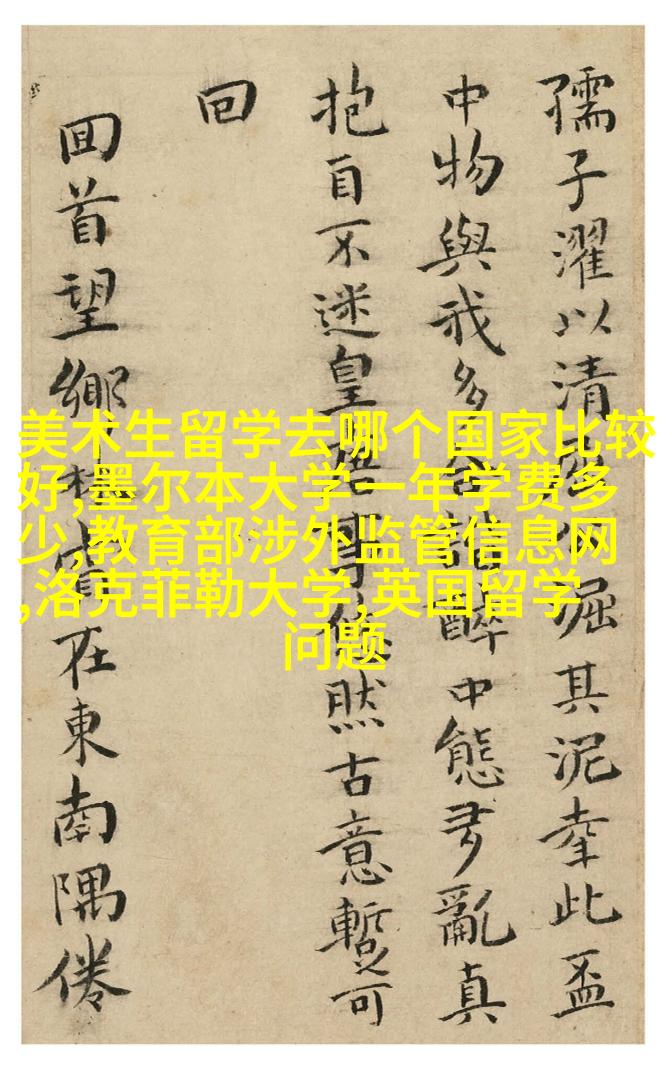 孺子濯以清掘其泥此盃
中物與我多諧醉中態亂真
抱自不迷皇然古意暫可
回
回首望鄉在東南隅倦
美术生留学去哪个国家比较
好,墨尔本大学一年学费多
少,教育部涉外监管信息网
,洛克菲勒大学,英国留学
问题